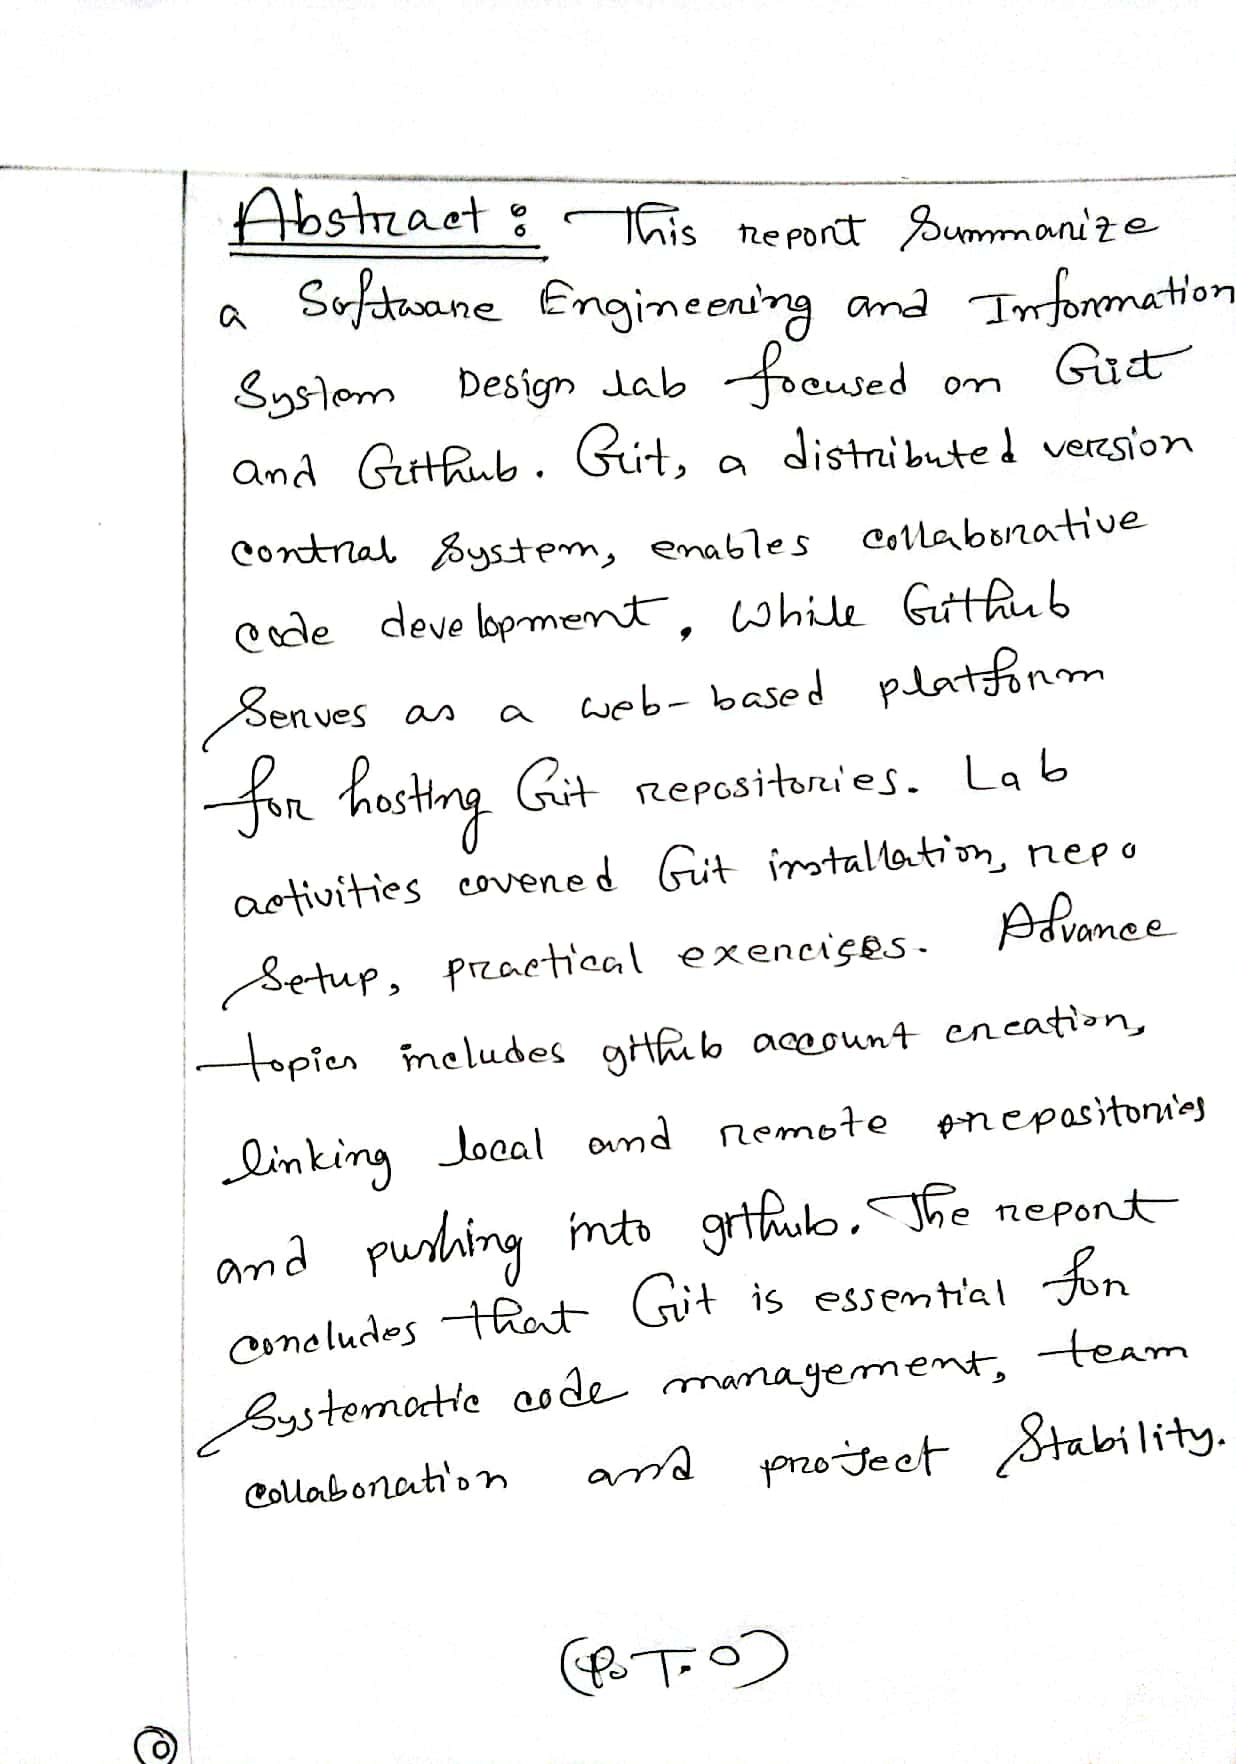 Abstract : This report Summarize
a Software Engineering and Information
System Design lab focused on Git
and Github. Git, a distributed version
control System, enables collaborative
code development, while Github
Serves as a web-based platform
for hosting Git repositories. Lab
activities covered Git installation, repo
Setup, practical exercises. Advance
topics includes github account creation,
linking local and remote repositories
and pushing into github. The report
concludes that Git is essential for
Systematic code management, team
collaboration and project Stability.
(P.T.O)